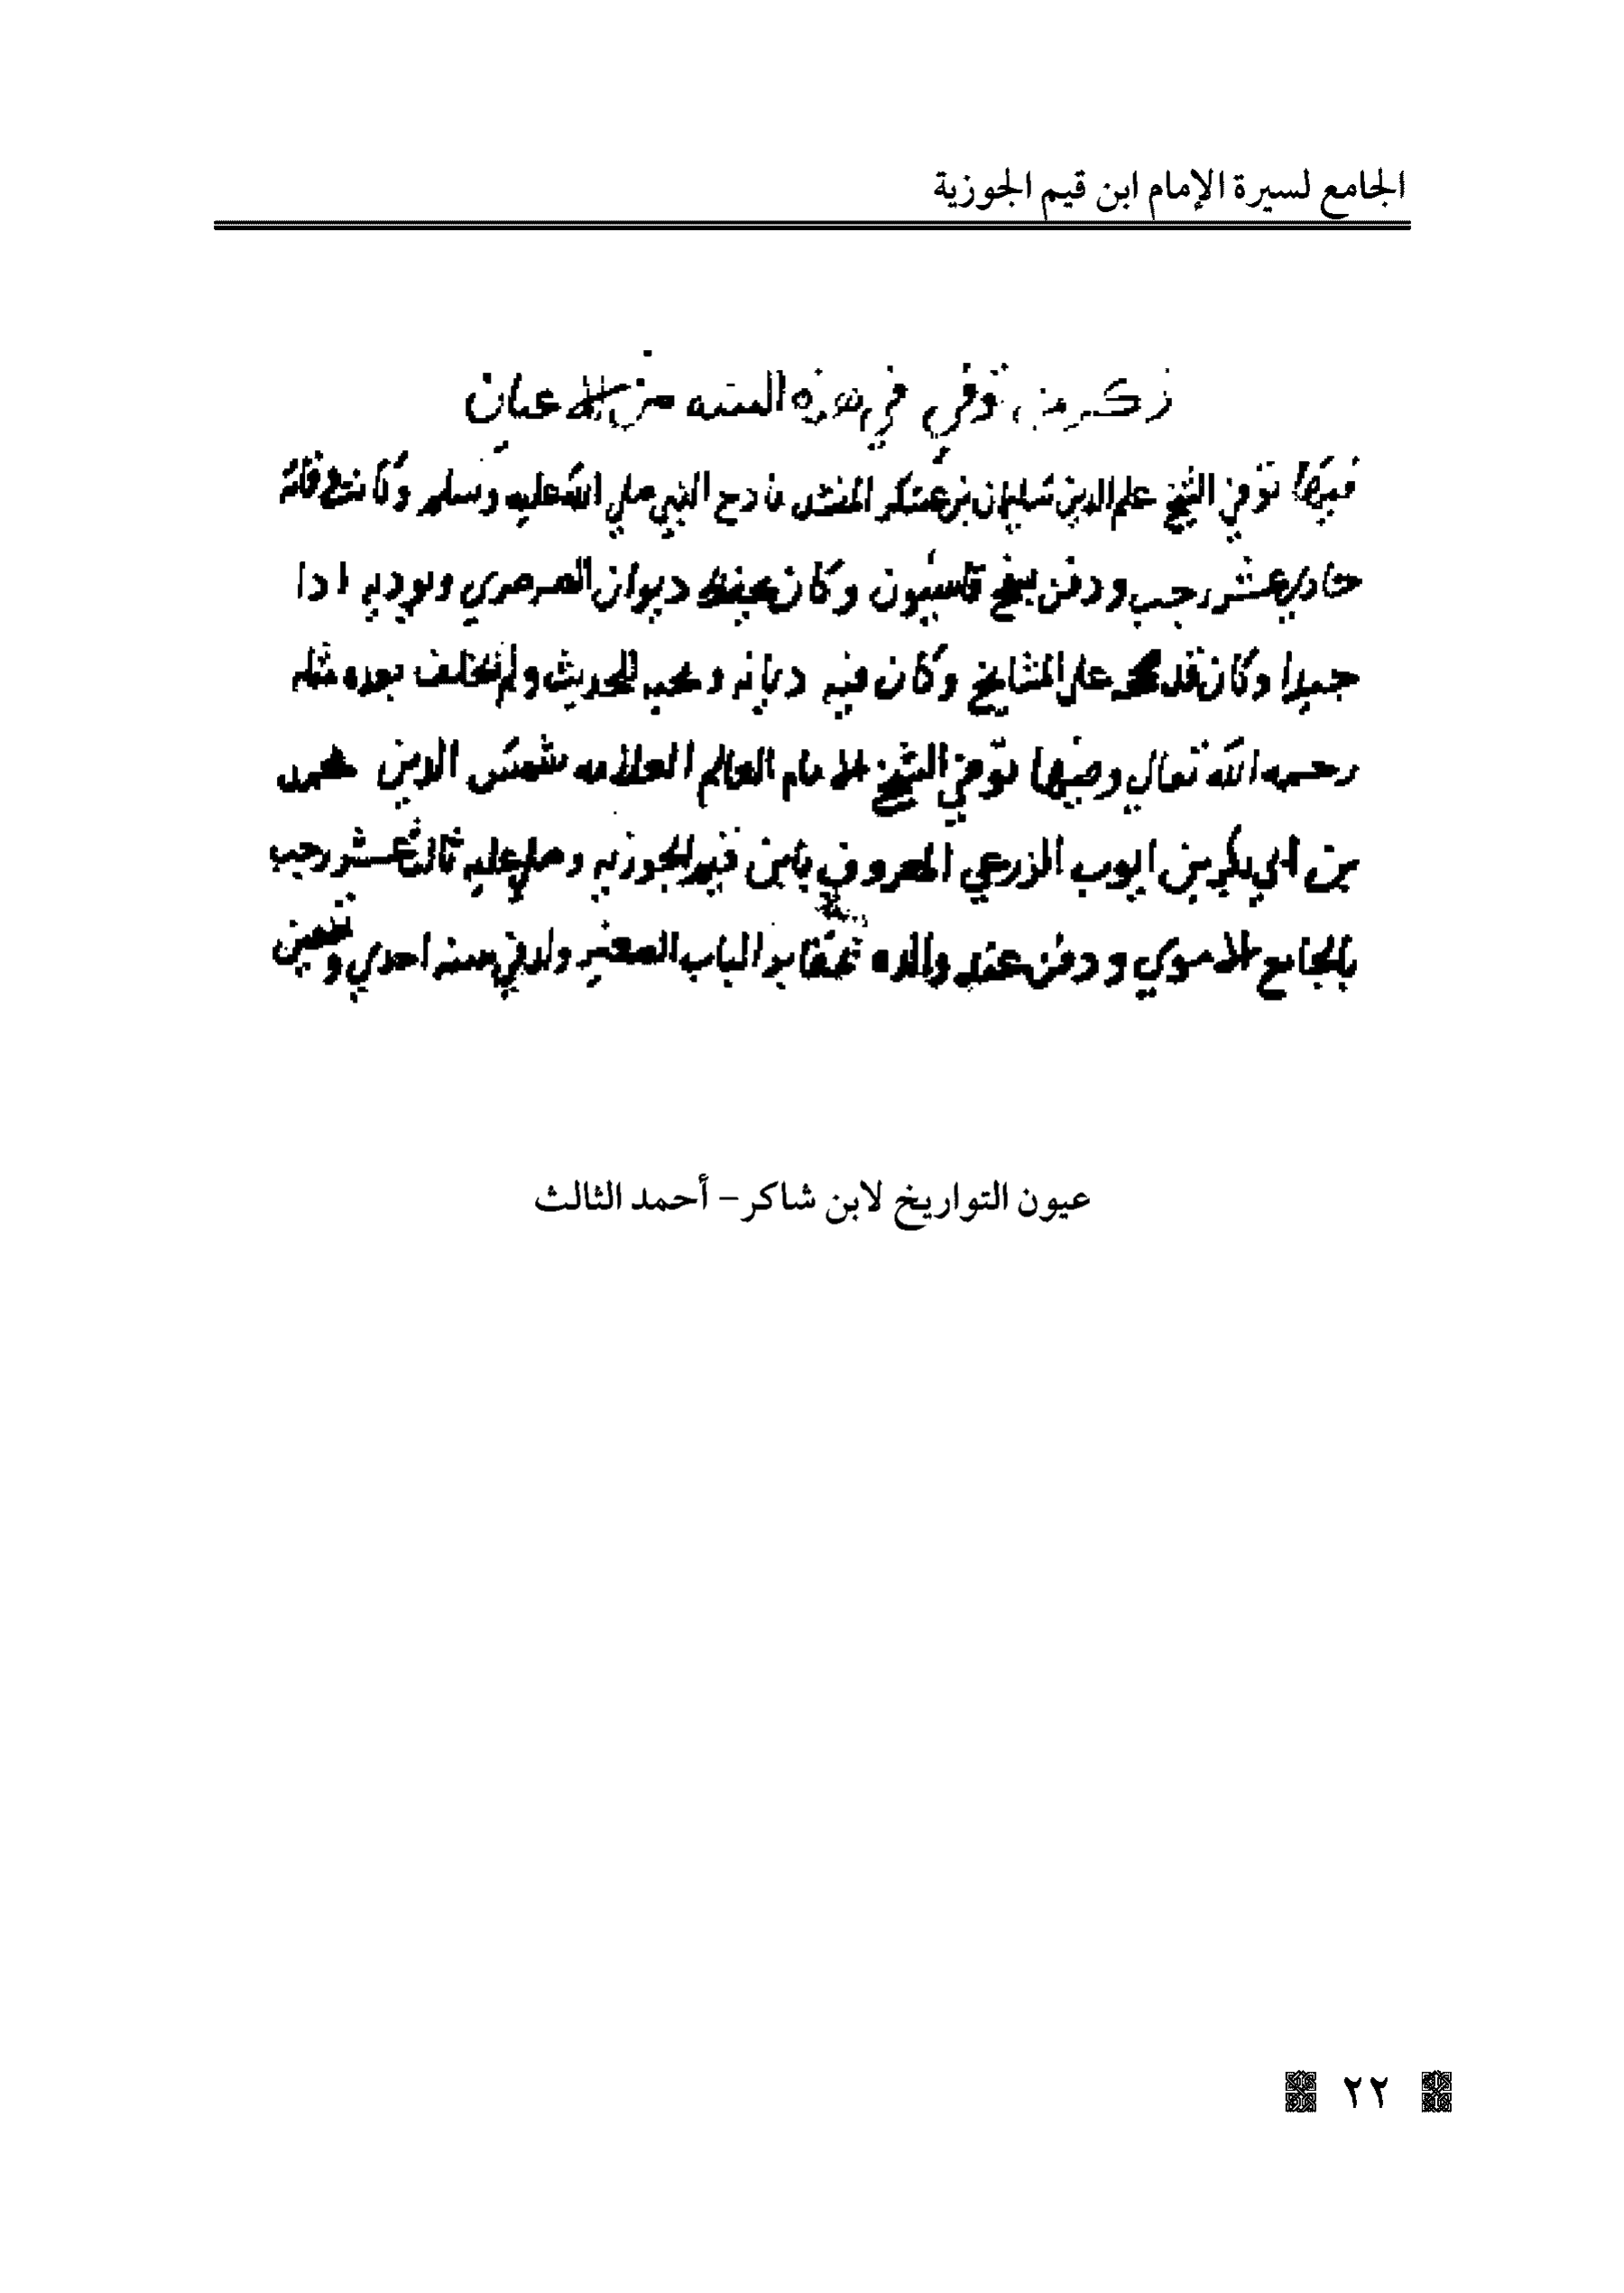 الجامع لسيرة الإمام ابن قيم الجوزية
ذكر من توفي في هذه السنه من الاعيان
فيها توفي الشيخ علم الدين سليمان بن عسكر المنشد مادح النبي صلي الله عليه وسلم وكانت وفاته
حادي عشر رجب ودفن بسفح قاسيون وكان يحفظ ديوان الصرصري ويوديه ادا
جيدا وكان قد على المشايخ وكان فيه ديانه ومحبه للحديث ولم يخلف بعده مثله
رحمه الله تعالي وفيها توفي الشيخ الامام العالم العلامه شمس الدين محمد
بن ابي بكر بن ايوب الزرعي المعروف بابن قيم الجوزيه وصلي عليه ثالث عشر رجب
بالجامع الاموي ودفن عند والده بمقابر الباب الصغير ولد في سنه احدي وتسعين
عيون التواريخ لابن شاكر – أحمد الثالث
٢٢